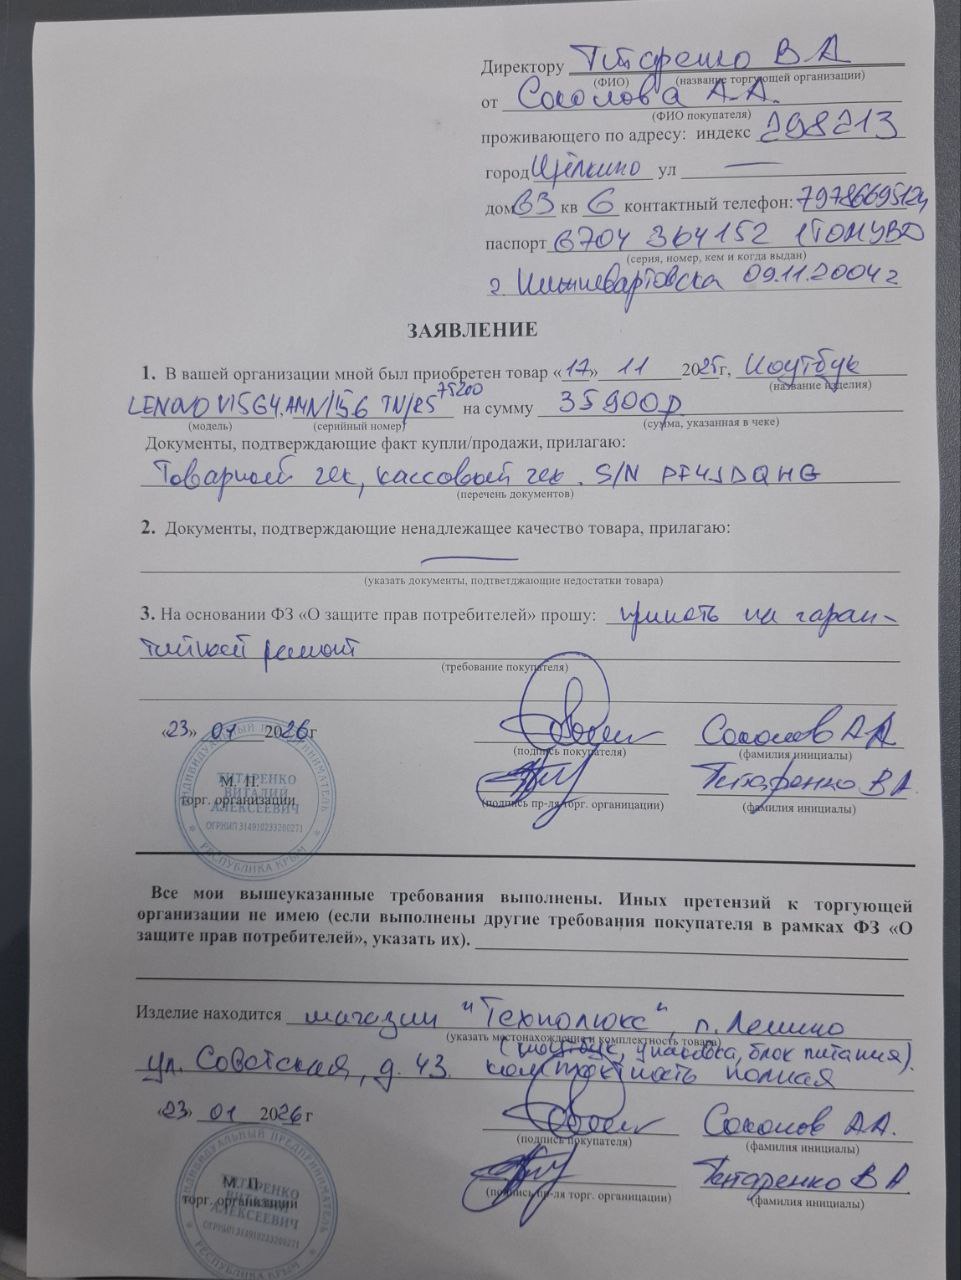 Директору Титаренко В А
(ФИО) (название торгующей организации)
от Соколова А.А.
(ФИО покупателя)
проживающего по адресу: индекс 298213
город Щёлкино ул —
дом 63 кв 6 контактный телефон:
паспорт 6704 364152 1ТОМУВД
(серия, номер, кем и когда выдан)
г. Нижневартовска 09.11.2004г
ЗАЯВЛЕНИЕ
1. В вашей организации мной был приобретен товар «17» 11 2025г, Ноутбук
(название изделия)
LENOVO V15G4, AMN/15.6 TN/R5 7520U на сумму 35900р
(модель) (серийный номер) (сумма, указанная в чеке)
Документы, подтверждающие факт купли/продажи, прилагаю:
Товарный чек, кассовый чек. S/N PF4JDQHG
(перечень документов)
2. Документы, подтверждающие ненадлежащее качество товара, прилагаю:
—
(указать документы, подтветджающие недостатки товара)
3. На основании ФЗ «О защите прав потребителей» прошу: принять на гаран-
тийный ремонт
(требование покупателя)
«23» 01 2026г Соколов А А
(подпись покупателя) (фамилия инициалы)
М. П. Титаренко В А
торг. организации (подпись пр-ля торг. органицации) (фамилия инициалы)
ИНДИВИДУАЛЬНЫЙ ПРЕДПРИНИМАТЕЛЬ
ТИТАРЕНКО
ВИТАЛИЙ
АЛЕКСЕЕВИЧ
ОГРНИП 314910233200271
РЕСПУБЛИКА КРЫМ
Все мои вышеуказанные требования выполнены. Иных претензий к торгующей
организации не имею (если выполнены другие требования покупателя в рамках ФЗ «О
защите прав потребителей», указать их).
Изделие находится магазин "Технолюкс", п. Ленино
(указать местонахождения и комплектность товара)
(ноутбук, упаковка, блок питания).
ул. Советская, д. 43. комплектность полная
«23» 01 2026г Соколов А.А.
(подпись покупателя) (фамилия инициалы)
М. П. Титаренко В А
торг. организации (подпись пр-ля торг. органицации) (фамилия инициалы)
ИНДИВИДУАЛЬНЫЙ ПРЕДПРИНИМАТЕЛЬ
ТИТАРЕНКО
ВИТАЛИЙ
АЛЕКСЕЕВИЧ
ОГРНИП 314910233200271
РЕСПУБЛИКА КРЫМ